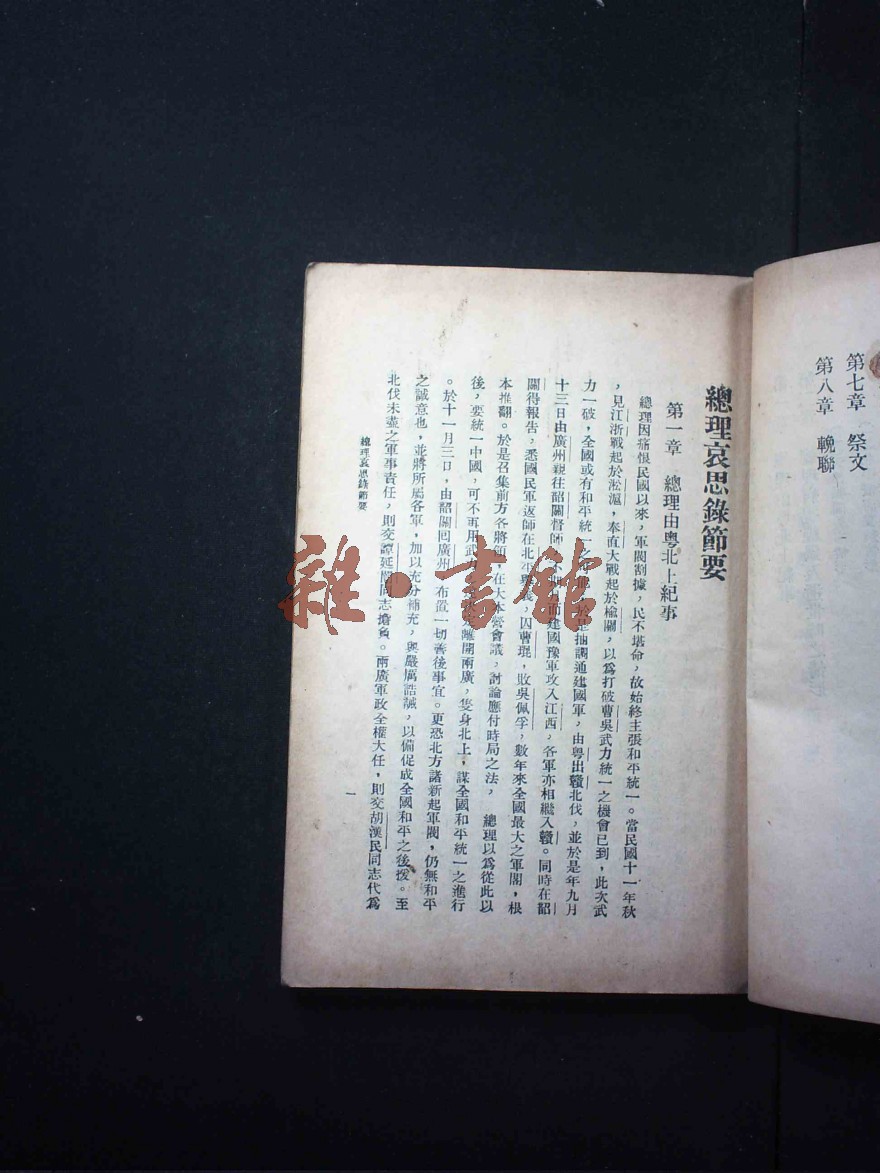 第七章　祭文
第八章　輓聯
總理哀思錄節要
第一章　總理由粵北上紀事
總理因痛恨民國以來，軍閥割據，民不堪命，故始終主張和平統一。當民國十一年秋
，見江浙戰起於淞滬，奉直大戰起於楡關，以爲打破曹吳武力統一之機會已到，此次武
力一破，全國或有和平統一之於是抽調通建國軍，由粵出贛北伐，並於是年九月
十三日由廣州親往韶關督師而建國豫軍攻入江西，各軍亦相繼入贛。同時在韶
關得報告，悉國民軍返師在北平囚曹琨，敗吳佩孚，數年來全國最大之軍閥，根
本推翻。於是召集前方各將領，在大本營會議，討論應付時局之法，　總理以爲從此以
後，要統一中國，可不再用武離開兩廣，隻身北上，謀全國和平統一之進行
。於十一月三日，由韶關回廣州布置一切善後事宜。更恐北方諸新起軍閥，仍無和平
之誠意也，並將所屬各軍，加以充分補充，與嚴厲誥誡，以備促成全國和平之後援。至
北伐未盡之軍事責任，則交譚延闓同志擔負。兩廣軍政全權大任，則交胡漢民同志代爲
總理哀思錄節要
一
雜·書館